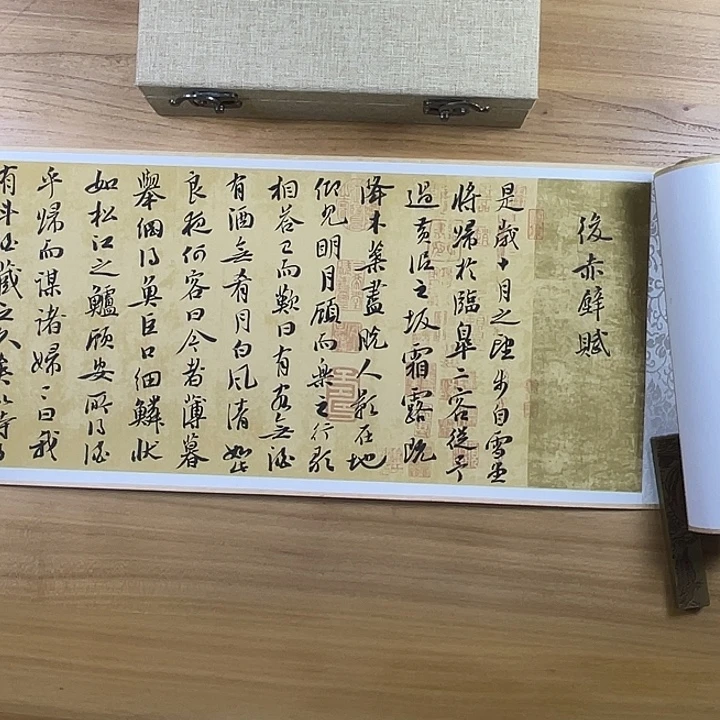 後赤壁賦
是歲十月之望步自雪堂
將歸於臨皋二客從予
過黃泥之坂霜露既
降木葉盡脫人影在地
仰見明月顧而樂之行歌
相答已而歎曰有客無酒
有酒無肴月白風清如此
良夜何客曰今者薄暮
舉網得魚巨口細鱗狀
如松江之鱸顧安所得酒
乎歸而謀諸婦〻曰我
有斗酒藏之久矣以待